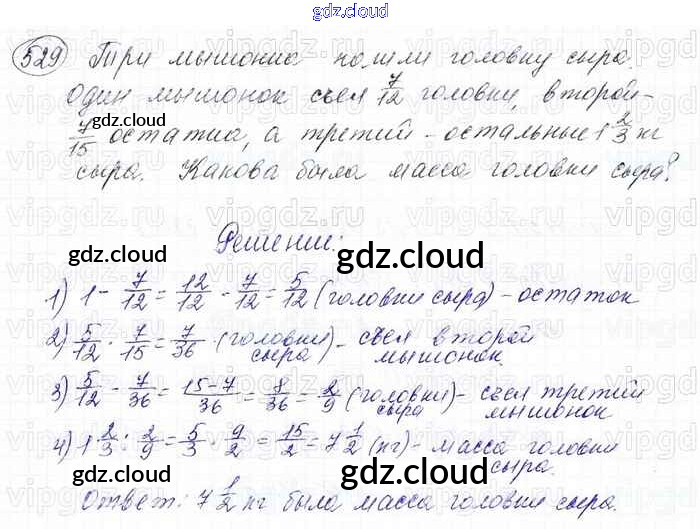 gdz.cloud
529 Три мышонка нашли головку сыра.
Один мышонок съел 7/12 головки, второй -
7/15 остатка, а третий - остальные 1 2/3 кг
gdz.cloud
сыра. Какова была масса головки сыра?
Решение:
gdz.cloud gdz.cloud
1) 1 - 7/12 = 12/12 - 7/12 = 5/12 (головки сыра) - остаток
2) 5/12 · 7/15 = 7/36 (головки сыра) - съел второй мышонок.
3) 5/12 - 7/36 = (15-7)/36 = 8/36 = 2/9 (головки сыра) - съел третий мышонок
4) 1 2/3 : 2/9 = 5/3 · 9/2 = 15/2 = 7 1/2 (кг) - масса головки сыра.
gdz.cloud gdz.cloud
Ответ: 7 1/2 кг была масса головки сыра.